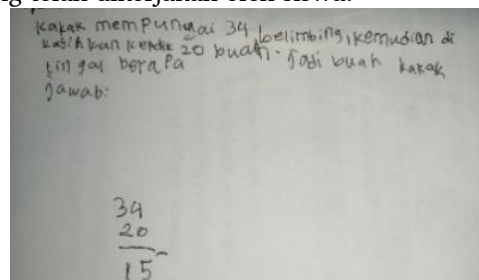 Kakak mempunyai 34 belimbing, kemudian di
kasihkan kendik 20 buah. Jadi buah kakak
tingal berapa
Jawab:
34
20
15